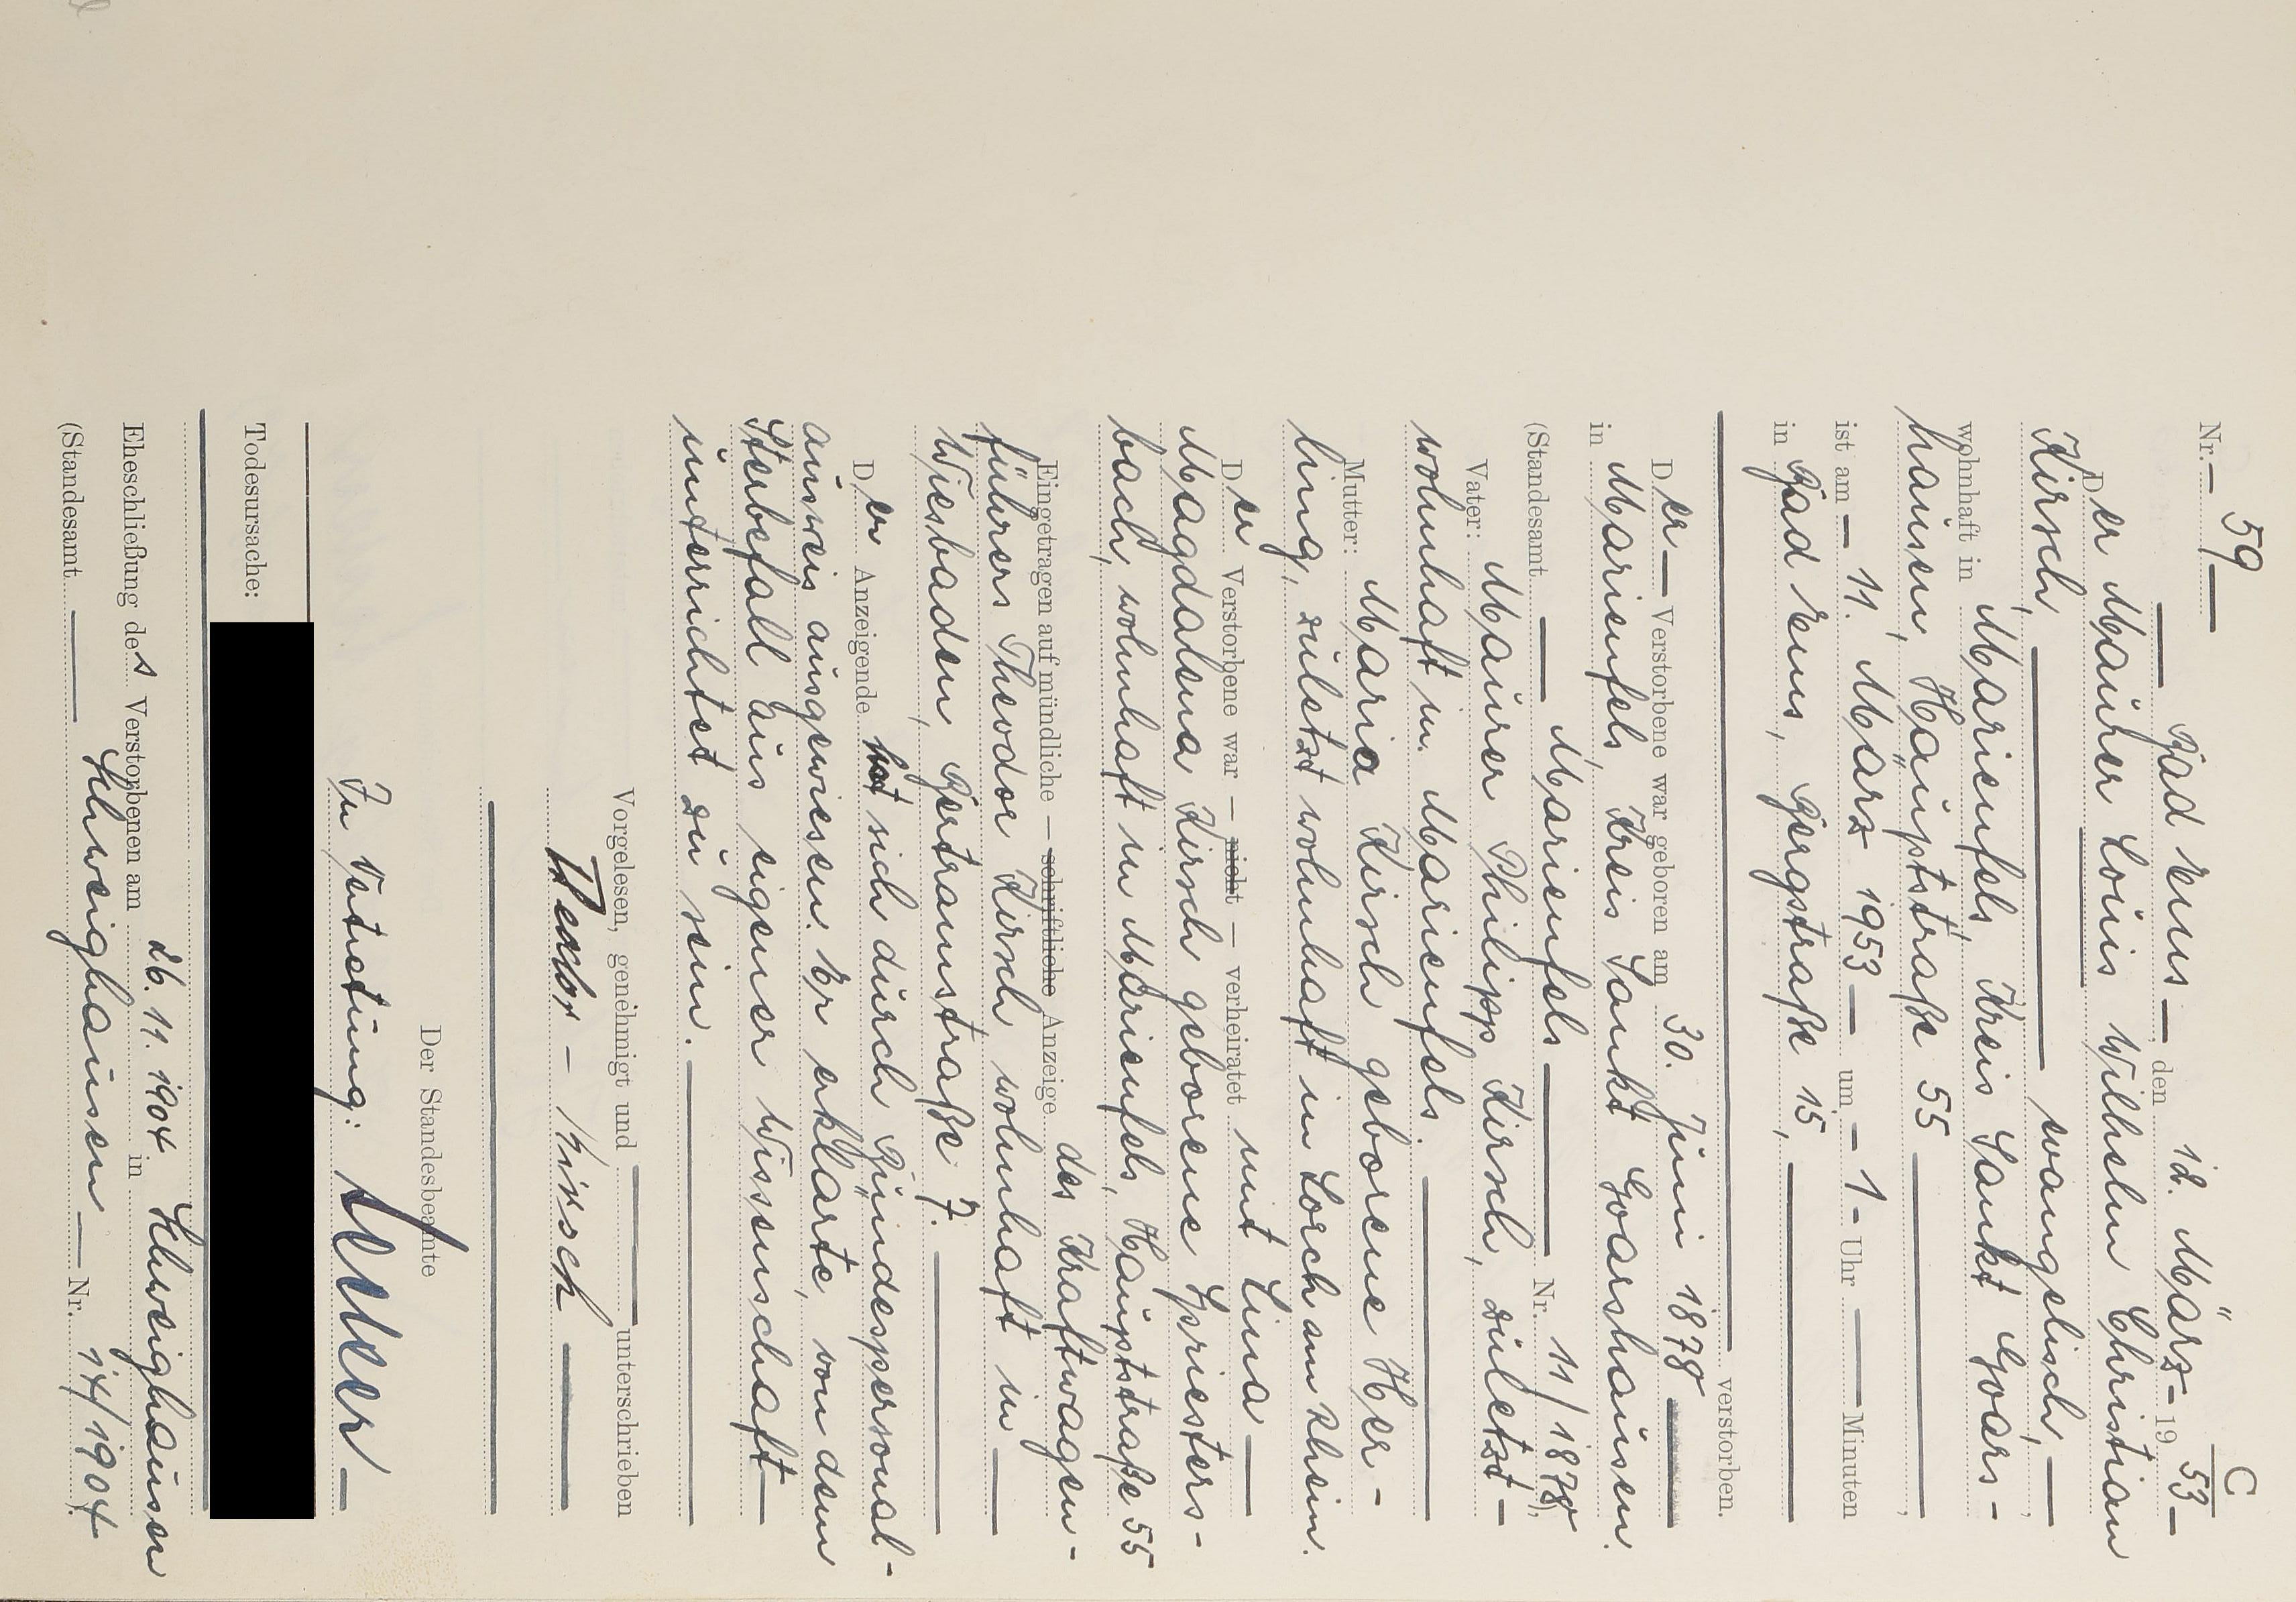 C
Nr. — 59 —
— Bad Ems —, den 12. März — 19 53 —
Der Maurer Louis Wilhelm Christian
Kirsch, — evangelisch, —
wohnhaft in Marienfels, Kreis Sankt Goars-
hausen, Hauptstraße 55 —,
ist am — 11. März 1953 — um — 1 — Uhr — Minuten
in Bad Ems, Bergstraße 15, — verstorben.
Der — Verstorbene war geboren am 30. Juni 1878 —
in Marienfels, Kreis Sankt Goarshausen.
(Standesamt — Marienfels — Nr. 11/1878),
Vater: Maurer Philipp Kirsch, zuletzt —
wohnhaft in Marienfels. —
Mutter: Maria Kirsch geborene Her-
ling, zuletzt wohnhaft in Lorch am Rhein.
Der Verstorbene war — nicht — verheiratet mit Lina —
Magdalena Kirsch geborene Spriesters-
bach, wohnhaft in Marienfels, Hauptstraße 55
Eingetragen auf mündliche — schriftliche Anzeige des Kraftwagen-
führers Theodor Kirsch wohnhaft in —
Wiesbaden, Gertraustraße 7. —
Der Anzeigende hat sich durch Bundespersonal-
ausweis ausgewiesen. Er erklärte, von dem
Sterbefall aus eigener Wissenschaft —
unterrichtet zu sein. —
Vorgelesen, genehmigt und — unterschrieben
— Kirsch —
Der Standesbeamte
In Vertretung:
Todesursache:
Eheschließung des Verstorbenen am 26. 11. 1904 in Schweighausen
(Standesamt — Schweighausen — Nr. 14/1904).